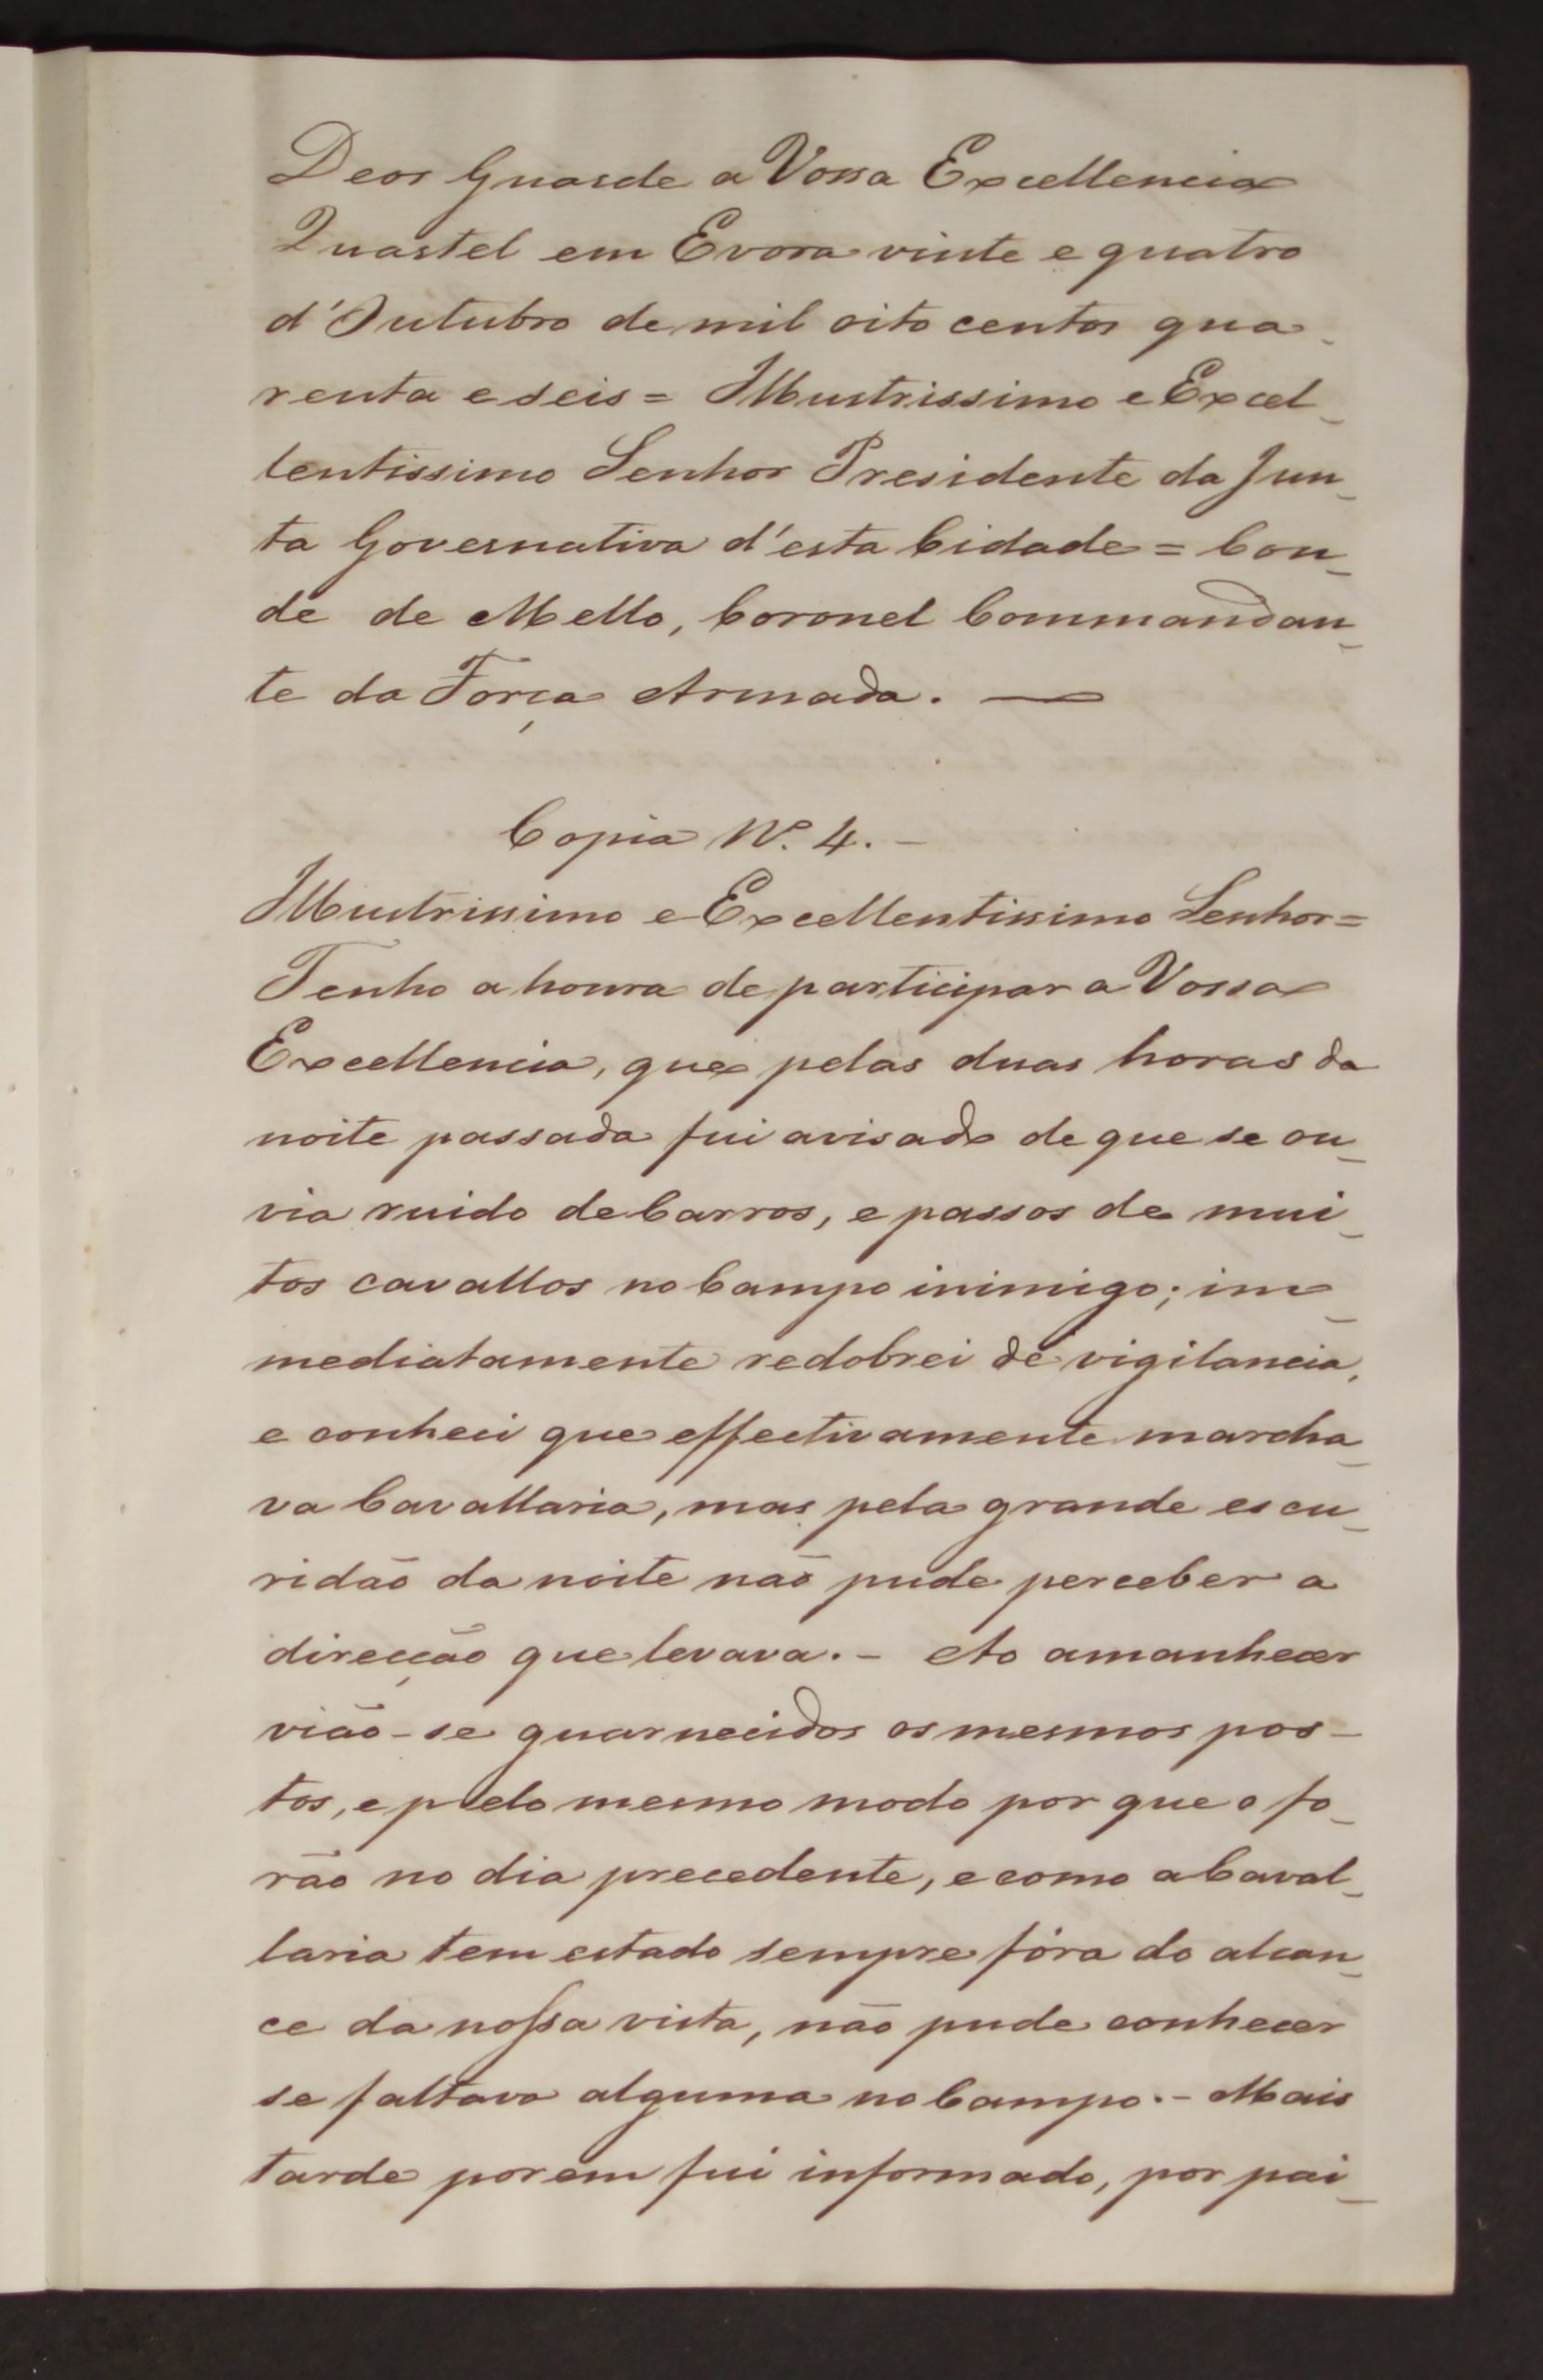 Deos Guarde a Vossa Excellencia
Quartel em Evora vinte e quatro
d'Outubro de mil oito centos qua-
renta e seis = Illustrissimo e Excel-
lentissimo Senhor Presidente da Jun-
ta Governativa d'esta Cidade = Con-
de de Mello, Coronel Commandan-
te da Força Armada. —
Copia Nº. 4. -
Illustrissimo e Excellentissimo Senhor =
Tenho a honra de participar a Vossa
Excellencia, que pelas duas horas da
noite passada fui avisado de que se ou-
via ruido de Carros, e passos de mui-
tos cavallos no Campo inimigo; im-
mediatamente redobrei de vigilancia,
e conheci que effectivamente marcha-
va Cavallaria, mas pela grande escu-
ridão da noite não pude perceber a
direcção que levava. - Ao amanhecer
vião-se guarnecidos os mesmos pos-
tos, e pelo mesmo modo por que o fo-
rão no dia precedente, e como a Caval-
laria tem estado sempre fóra do alcan-
ce da nossa vista, não pude conhecer
se faltava alguma no Campo. - Mais
tarde porem fui informado, por pai-